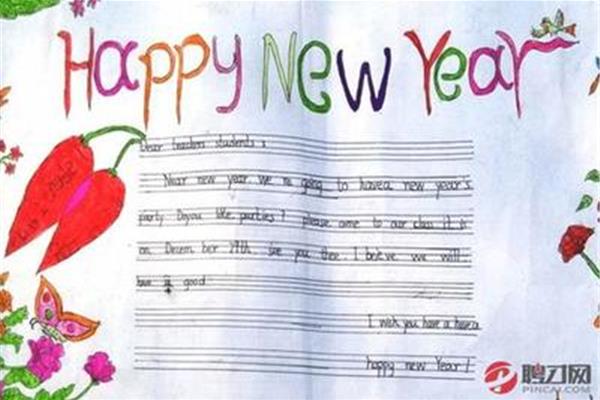 Happy New Year
Dear teachers students:
Near new year we're going to have a new year's
party. Do you like parties? please come to our class it is
on Decem ber 29th. See you there. I believe we will
have a good
I wish you have a have a
happy new Year!
聘才网
PINCAI.COM